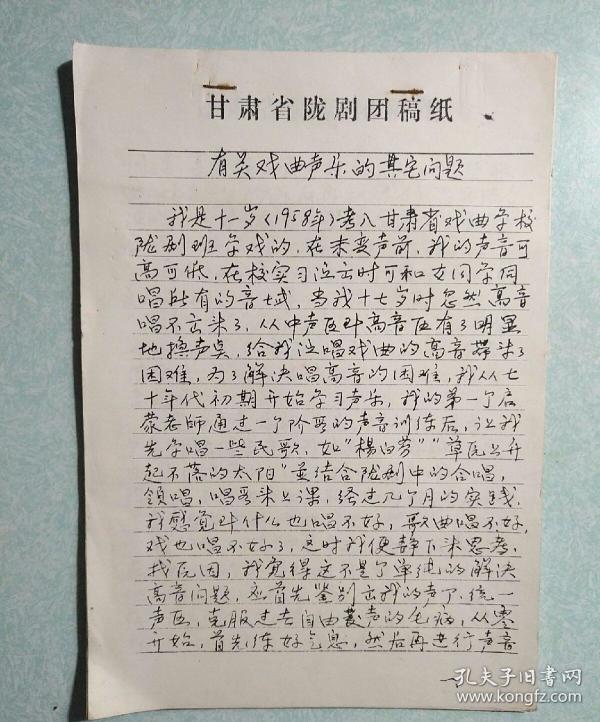 甘肃省陇剧团稿纸
有关戏曲声乐的其它问题
我是十一岁（1958年）考入甘肃省戏曲学校
陇剧班学戏的，在未变声前，我的声音可
高可低，在校实习演出时可和女同学同
唱所有的音域，当我十七岁时忽然高音
唱不出来了，从中声区到高音区有了明显
地换声点，给我演唱戏曲的高音带来了
困难，为了解决唱高音的困难，我从七
十年代初期开始学习声乐，我的第一个启
蒙老师通过一个阶段的声音训练后，让我
先学唱一些民歌，如"楊白劳""草原上升
起不落的太阳"並结合陇剧中的合唱，
領唱，唱段来上课，经过几个月的实践，
我感觉到什么也唱不好，歌曲唱不好，
戏也唱不好了，这时我便静下来思考，
找原因，我觉得这不是个单纯的解决
高音问题，应首先鉴别出我的声下，统一
声区，克服过去自由发声的毛病，从零
开始，首先练好气息，然后再进行声音
孔夫子旧书网
www.kongfz.com